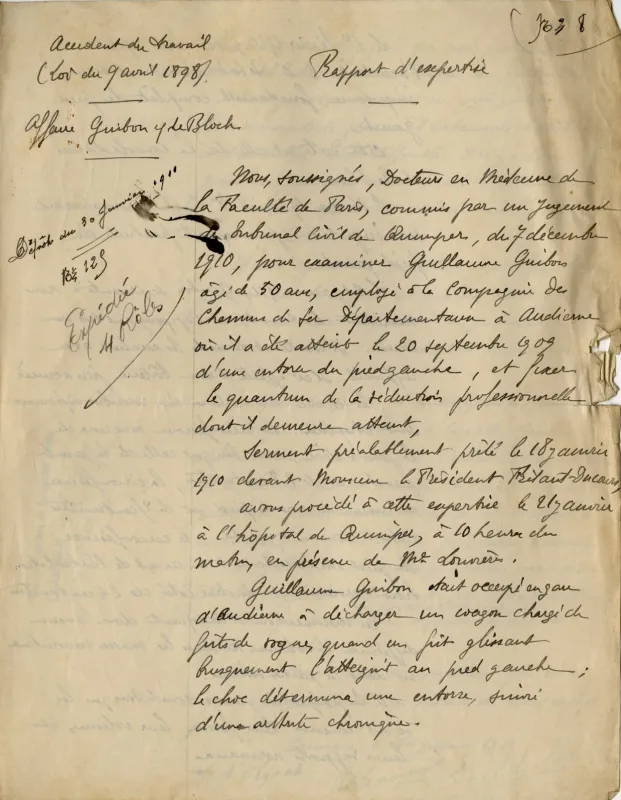 Accident du travail
(Loi du 9 avril 1898)
Rapport d'expertise
Affaire Guibon / de Bloch
Dépôt du 30 Janvier 1911
No 125
Expédié
4 Rôles
Nous, soussignés, Docteurs en Médecine de
la Faculté de Paris, commis par un jugement
du Tribunal Civil de Quimper, du 7 décembre
1910, pour examiner Guillaume Guibon
âgé de 50 ans, employé à la Compagnie des
Chemins de fer Départementaux à Audierne
où il a été atteint le 20 septembre 1909
d'une entorse du pied gauche, et fixer
le quantum de la réduction professionnelle
dont il demeure atteint,
Serment préalablement prêté le 18 janvier
1910 devant Monsieur le Président
avons procédé à cette expertise le 21 janvier
à l'hôpital de Quimper, à 10 heures du
matin, en présence de Me Louvières.
Guillaume Guibon était occupé en gare
d'Audierne à décharger un wagon chargé de
fûts de rogue, quand un fût glissant
brusquement l'atteignit au pied gauche ;
le choc détermina une entorse, suivie
d'une arthrite chronique.